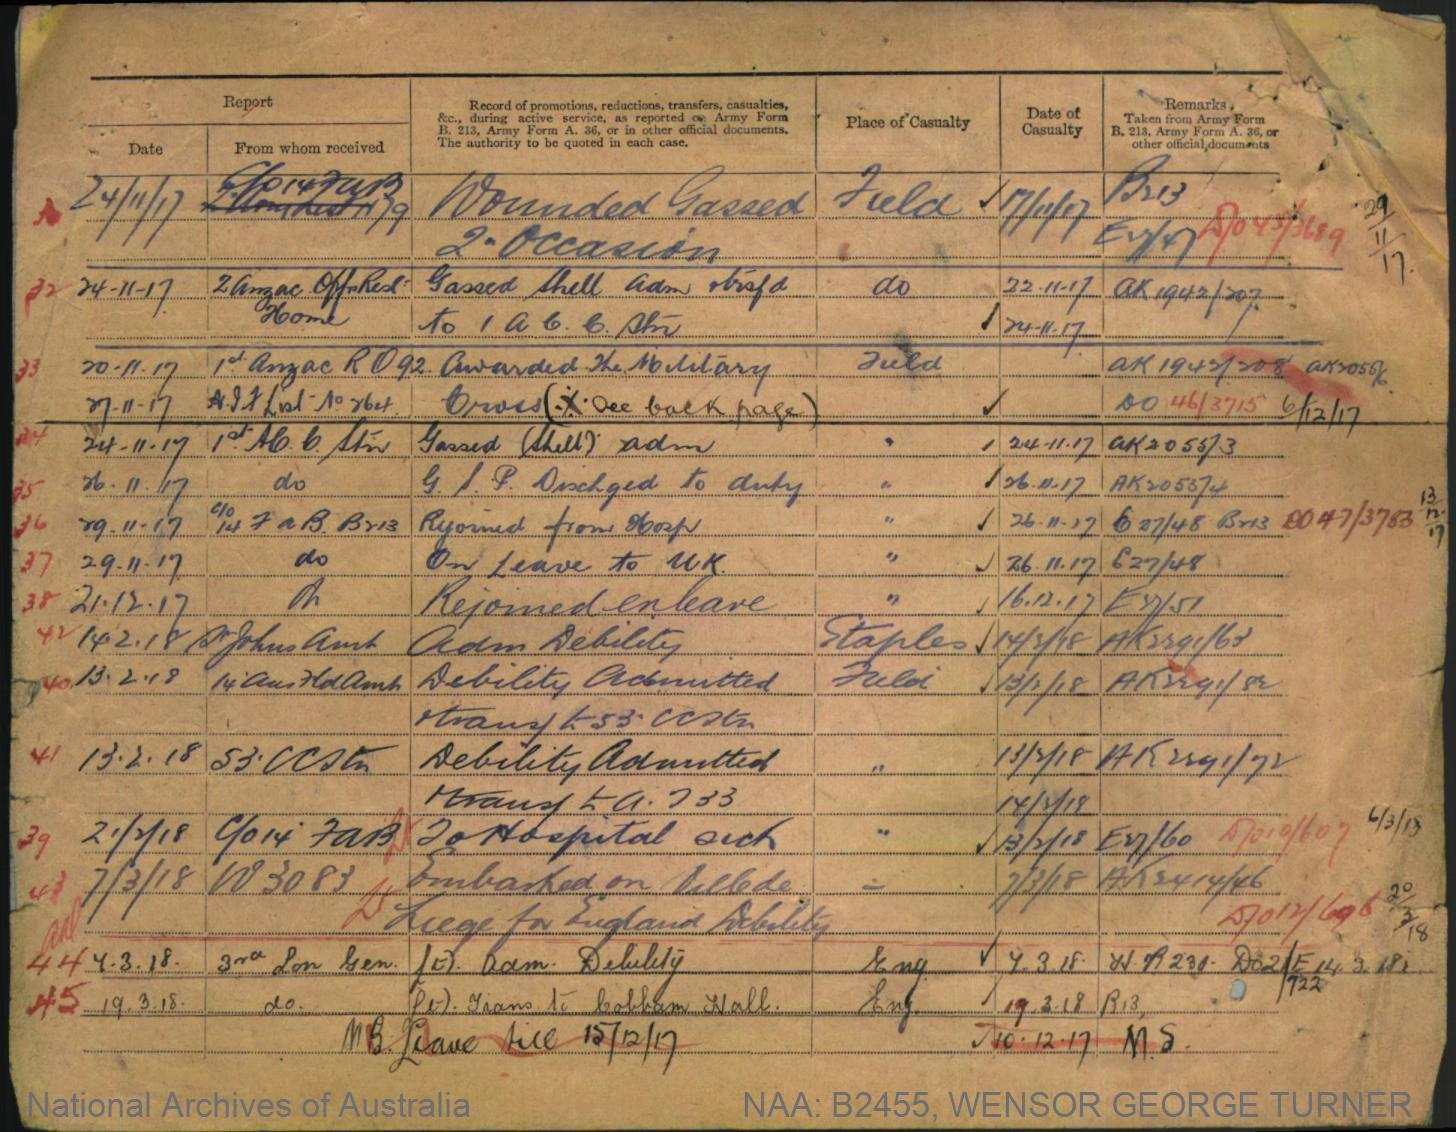 Report
Record of promotions, reductions, transfers, casualties,
&c., during active service, as reported on Army Form
B. 213, Army Form A. 36, or in other official documents.
The authority to be quoted in each case.
Place of Casualty
Date of
Casualty
Remarks
Taken from Army Form
B. 213, Army Form A. 36, or
other official documents
Date
From whom received
24/11/17 C/O 14 FAB Wounded Gassed Field 17/11/17 Br13
2nd Occasion E27/47 D/O 43/3689 29/11/17.
32 24-11-17 2 Anzac Offrs Rest Gassed Shell adm & trsfd do 22-11-17 AK 1942/207
Home to 1 A C. C. Stn 24-11-17
33 20-11-17 1st Anzac R O 92. Awarded The Military Field AK 1942/208 AK2055/6
27-11-17 A.I.F List No 264 Cross (X. See back page) DO 46/3715 6/12/17
34 24-11-17 1st AC. C. Stn Gassed (Shell) adm " 24-11-17 AK2055/3
35 26.11.17 do G. S. P. Dischged to duty " 26-11-17 AK2055/4
36 29.11-17 c/o 14 F a B. Br13 Rejoined from Hosp " 26-11-17 E27/48 Br13 DO 47/3783 13/12/17
37 29.11.17 do On Leave to U.K. " 26.11.17 E27/48
38 21-12-17 Rejoined ex leave " 16.12.17 E27/51
42 14.2.18 St Johns Amb Adm Debility Etaples 14/2/18 AK2291/63
40 13.2.18 14 Aus Fld Amb Debility Admitted Field 13/2/18 AK2291/82
& transf to 53 CCStn
41 13.2.18 53. CCStn Debility Admitted " 13/2/18 AK2291/72
& transf to A. T 33 14/2/18
39 21/2/18 C/O 14 FAB To Hospital sick " 13/2/18 E27/60 D/O 10/607 6/3/18
43 7/3/18 W 3083 Embarked on Ville de - 7/3/18 AK2414/46
Liege for England Debility D/O 12/696 20/3/18
44 7.3.18. 3rd Lon Gen. (t). adm. Debility Eng. 7.3.18. H R 230. DO21/E 14.3.18.
722
45 19.3.18. do. (t). Trans. to Cobham Hall. Eng. 19.3.18 R13,
N B. Leave till 15/12/17 10.12.17 M.S.
National Archives of Australia
NAA: B2455, WENSOR GEORGE TURNER